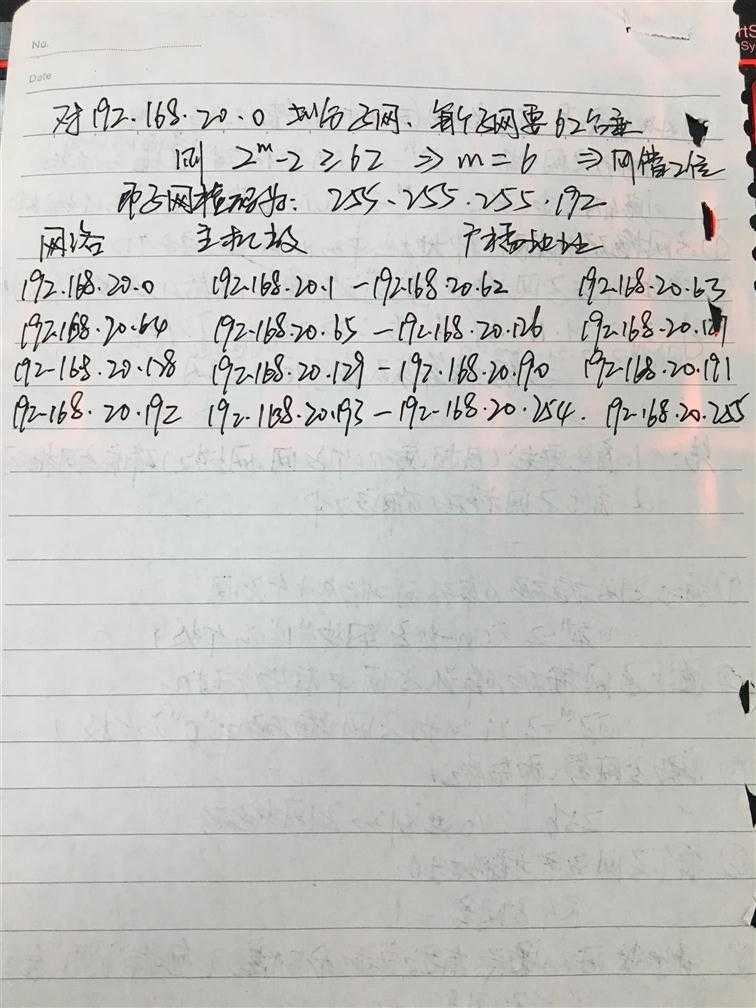 No.
Date
对192.168.20.0 划分子网、每个子网要62台主
则 2^m-2≥62 ⇒ m=6 ⇒ 网借2位
即子网掩码为: 255.255.255.192
网络 主机段 广播地址
192.168.20.0 192.168.20.1 - 192.168.20.62 192.168.20.63
192.168.20.64 192.168.20.65 - 192.168.20.126 192.168.20.127
192.168.20.128 192.168.20.129 - 192.168.20.190 192.168.20.191
192.168.20.192 192.1138.20.193 - 192.168.20.254. 192.168.20.255